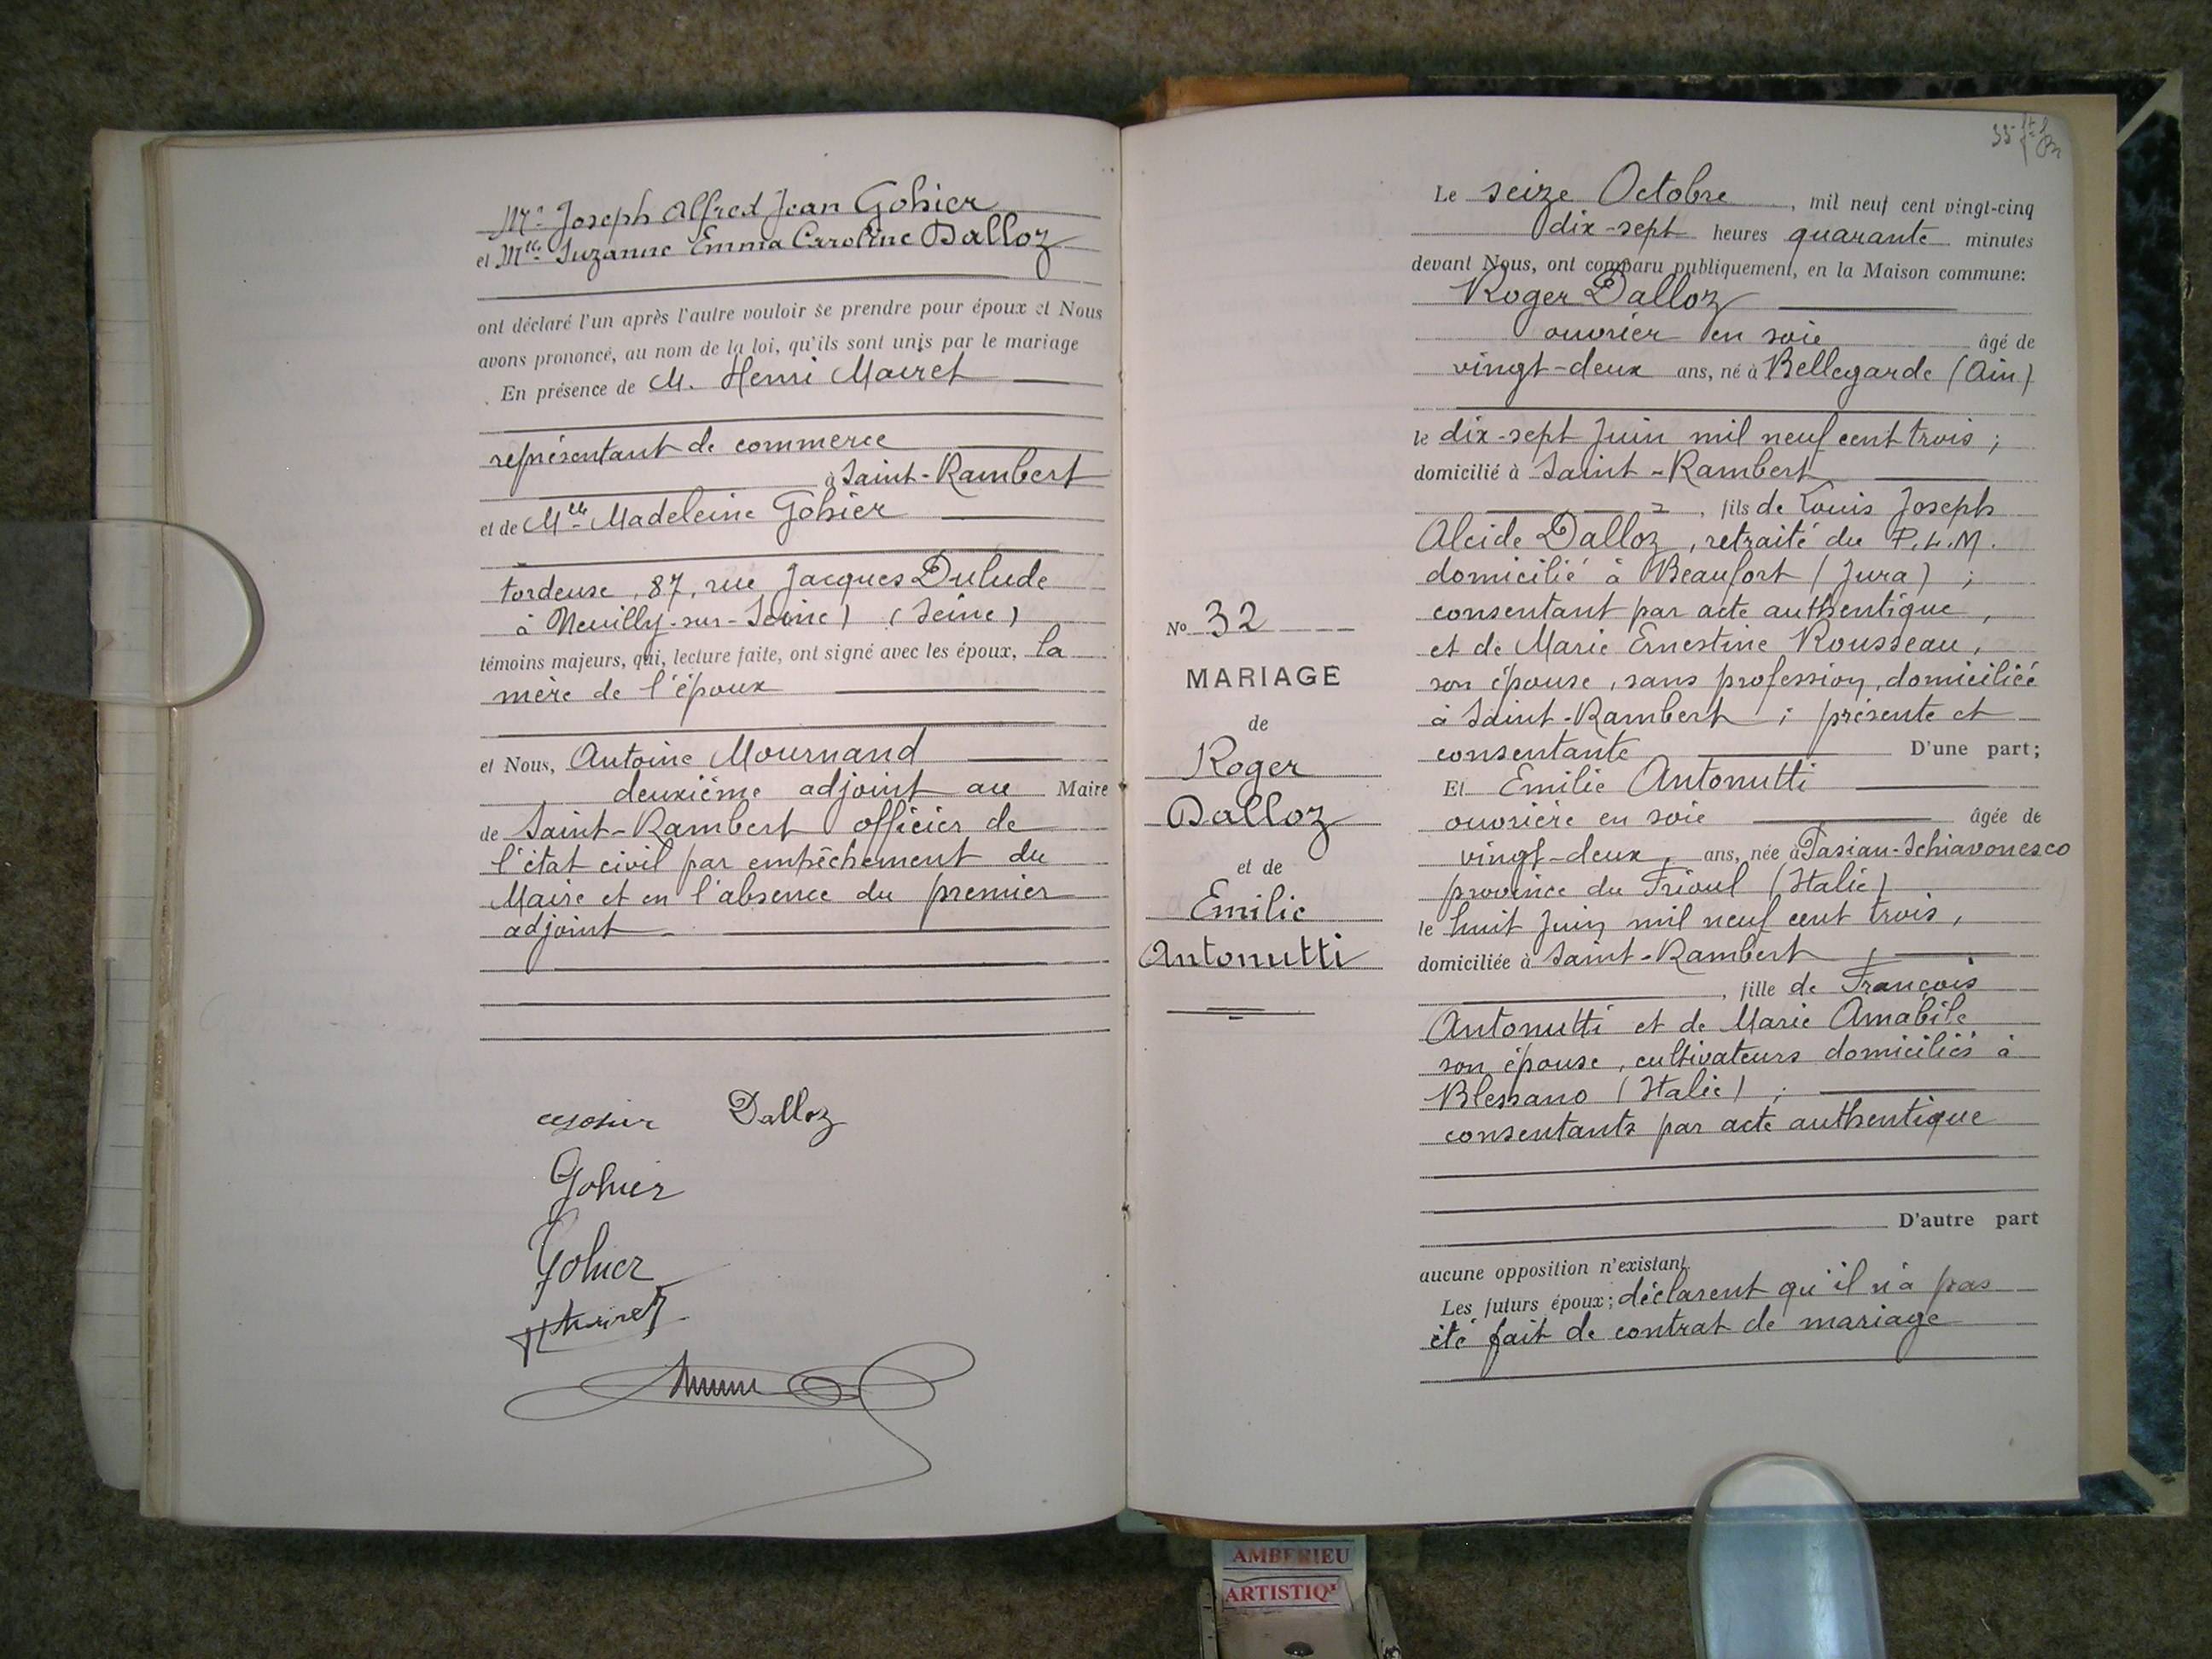 Mr Joseph Alfred Jean Gohier
et Mlle Suzanne Emma Caroline Dalloz
ont déclaré l'un après l'autre vouloir se prendre pour époux et Nous
avons prononcé, au nom de la loi, qu'ils sont unis par le mariage
En présence de M. Henri Mairet
représentant de commerce
à Saint-Rambert
et de Mlle Madeleine Gohier
tordeuse, 87, rue Jacques Dulude
à Neuilly-sur-Seine) (Seine)
témoins majeurs, qui, lecture faite, ont signé avec les époux, la
mère de l'époux
et Nous, Antoine Mournand
deuxième adjoint au Maire
de Saint-Rambert officier de
l'état civil par empêchement du
Maire et en l'absence du premier
adjoint
Dalloz
Gohier
Gohier
No 32
MARIAGE
de
Roger
Dalloz
et de
Emilie
Antonutti
Le seize Octobre, mil neuf cent vingt-cinq
dix-sept heures quarante minutes
devant Nous, ont comparu publiquement, en la Maison commune:
Roger Dalloz
ouvrier en soie âgé de
vingt-deux ans, né à Bellegarde (Ain)
le dix-sept Juin mil neuf cent trois;
domicilié à Saint-Rambert
, fils de Louis Joseph
Alcide Dalloz, retraité du P.L.M.
domicilié à Beaufort (Jura);
consentant par acte authentique,
et de Marie Ernestine Rousseau,
son épouse, sans profession, domiciliée
à Saint-Rambert; présente et
consentante D'une part;
Et Emilie Antonutti
ouvrière en soie âgée de
vingt-deux, ans, née à Pasian-Schiavonesco
province du Frioul (Italie)
le huit Juin mil neuf cent trois,
domiciliée à Saint-Rambert
, fille de François
Antonutti et de Marie Amabile
son épouse, cultivateurs domiciliés à
Blessano (Italie);
consentants par acte authentique
D'autre part
aucune opposition n'existant.
Les futurs époux; déclarent qu'il n'a pas
été fait de contrat de mariage
AMBERIEU
ARTISTIQ